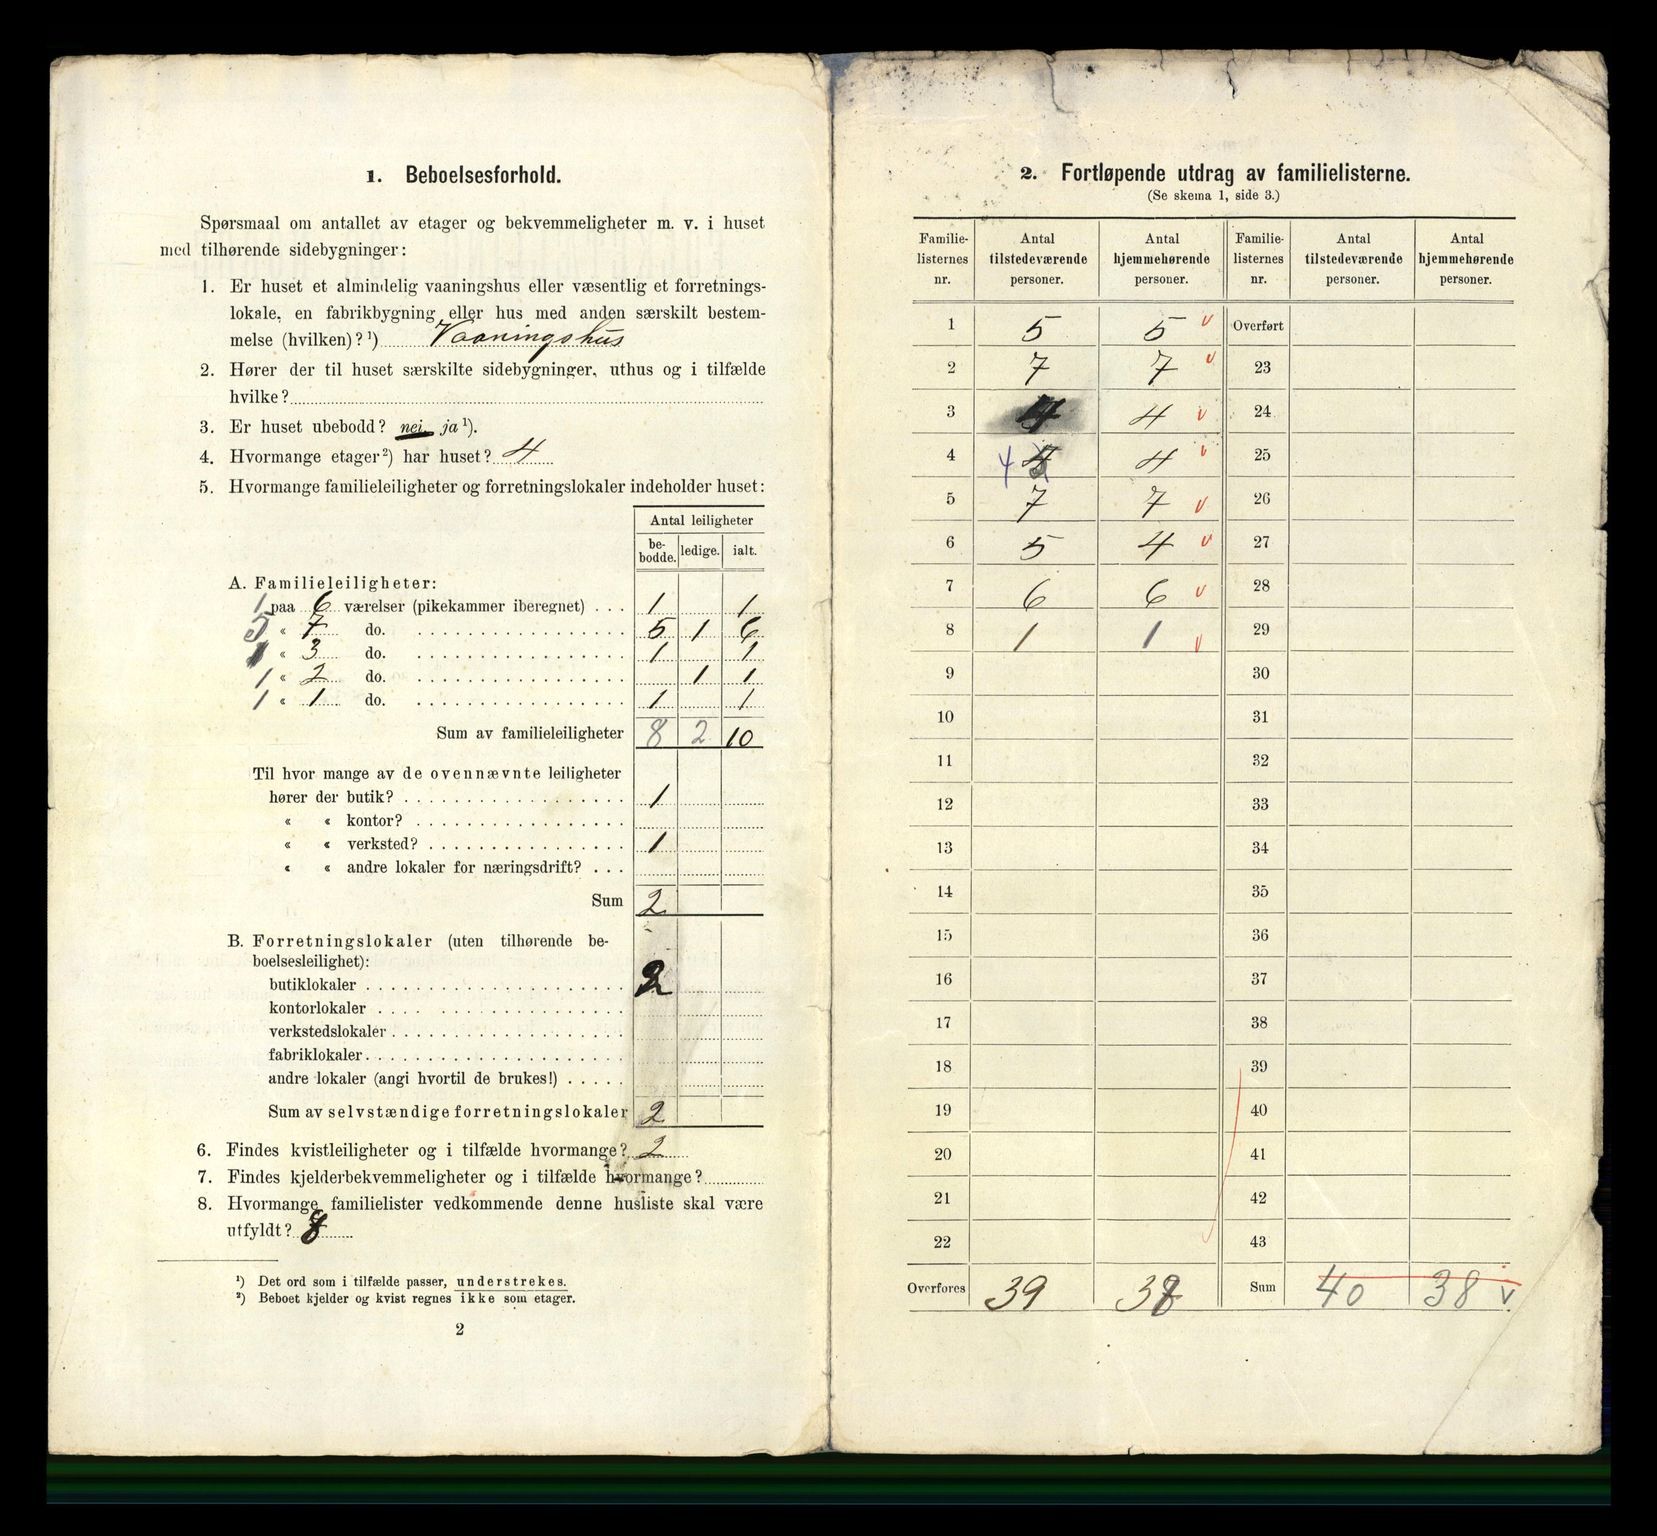 1. Beboelsesforhold.
Spørsmaal om antallet av etager og bekvemmeligheter m. v. i huset
med tilhørende sidebygninger:
1. Er huset et almindelig vaaningshus eller væsentlig et forretnings-
lokale, en fabrikbygning eller hus med anden særskilt bestem-
melse (hvilken)?¹) Vaaningshus
2. Hører der til huset særskilte sidebygninger, uthus og i tilfælde
hvilke?
3. Er huset ubebodd? nei, ja¹).
4. Hvormange etager²) har huset? 4
5. Hvormange familieleiligheter og forretningslokaler indeholder huset:
Antal leiligheter
be-bodde. ledige. ialt.
A. Familieleiligheter:
1 paa 6 værelser (pikekammer iberegnet) . . . 1 1
5 « 7 do. 5 1 6
1 « 3 do. 1 1
1 « 2 do. 1 1
1 « 1 do. 1 1
Sum av familieleiligheter 8 2 10
Til hvor mange av de ovennævnte leiligheter
hører der butik? 1
« « kontor?
« « verksted? 1
« « andre lokaler for næringsdrift?
Sum 2
B. Forretningslokaler (uten tilhørende be-
boelsesleilighet):
butiklokaler 2
kontorlokaler
verkstedslokaler
fabriklokaler
andre lokaler (angi hvortil de brukes!)
Sum av selvstændige forretningslokaler 2
6. Findes kvistleiligheter og i tilfælde hvormange? 2
7. Findes kjelderbekvemmeligheter og i tilfælde hvormange?
8. Hvormange familielister vedkommende denne husliste skal være
utfyldt? 8
¹) Det ord som i tilfælde passer, understrekes.
²) Beboet kjelder og kvist regnes ikke som etager.
2
2. Fortløpende utdrag av familielisterne.
(Se skema 1, side 3.)
Familie- Antal Antal Familie- Antal Antal
listernes tilstedeværende hjemmehørende listernes tilstedeværende hjemmehørende
nr. personer. personer. nr. personer. personer.
1 5 5 v Overført
2 7 7 v 23
3 4 4 v 24
4 4 4 v 25
5 7 7 v 26
6 5 4 v 27
7 6 6 v 28
8 1 1 v 29
9 30
10 31
11 32
12 33
13 34
14 35
15 36
16 37
17 38
18 39
19 40
20 41
21 42
22 43
Overføres 39 38 Sum 40 38 v